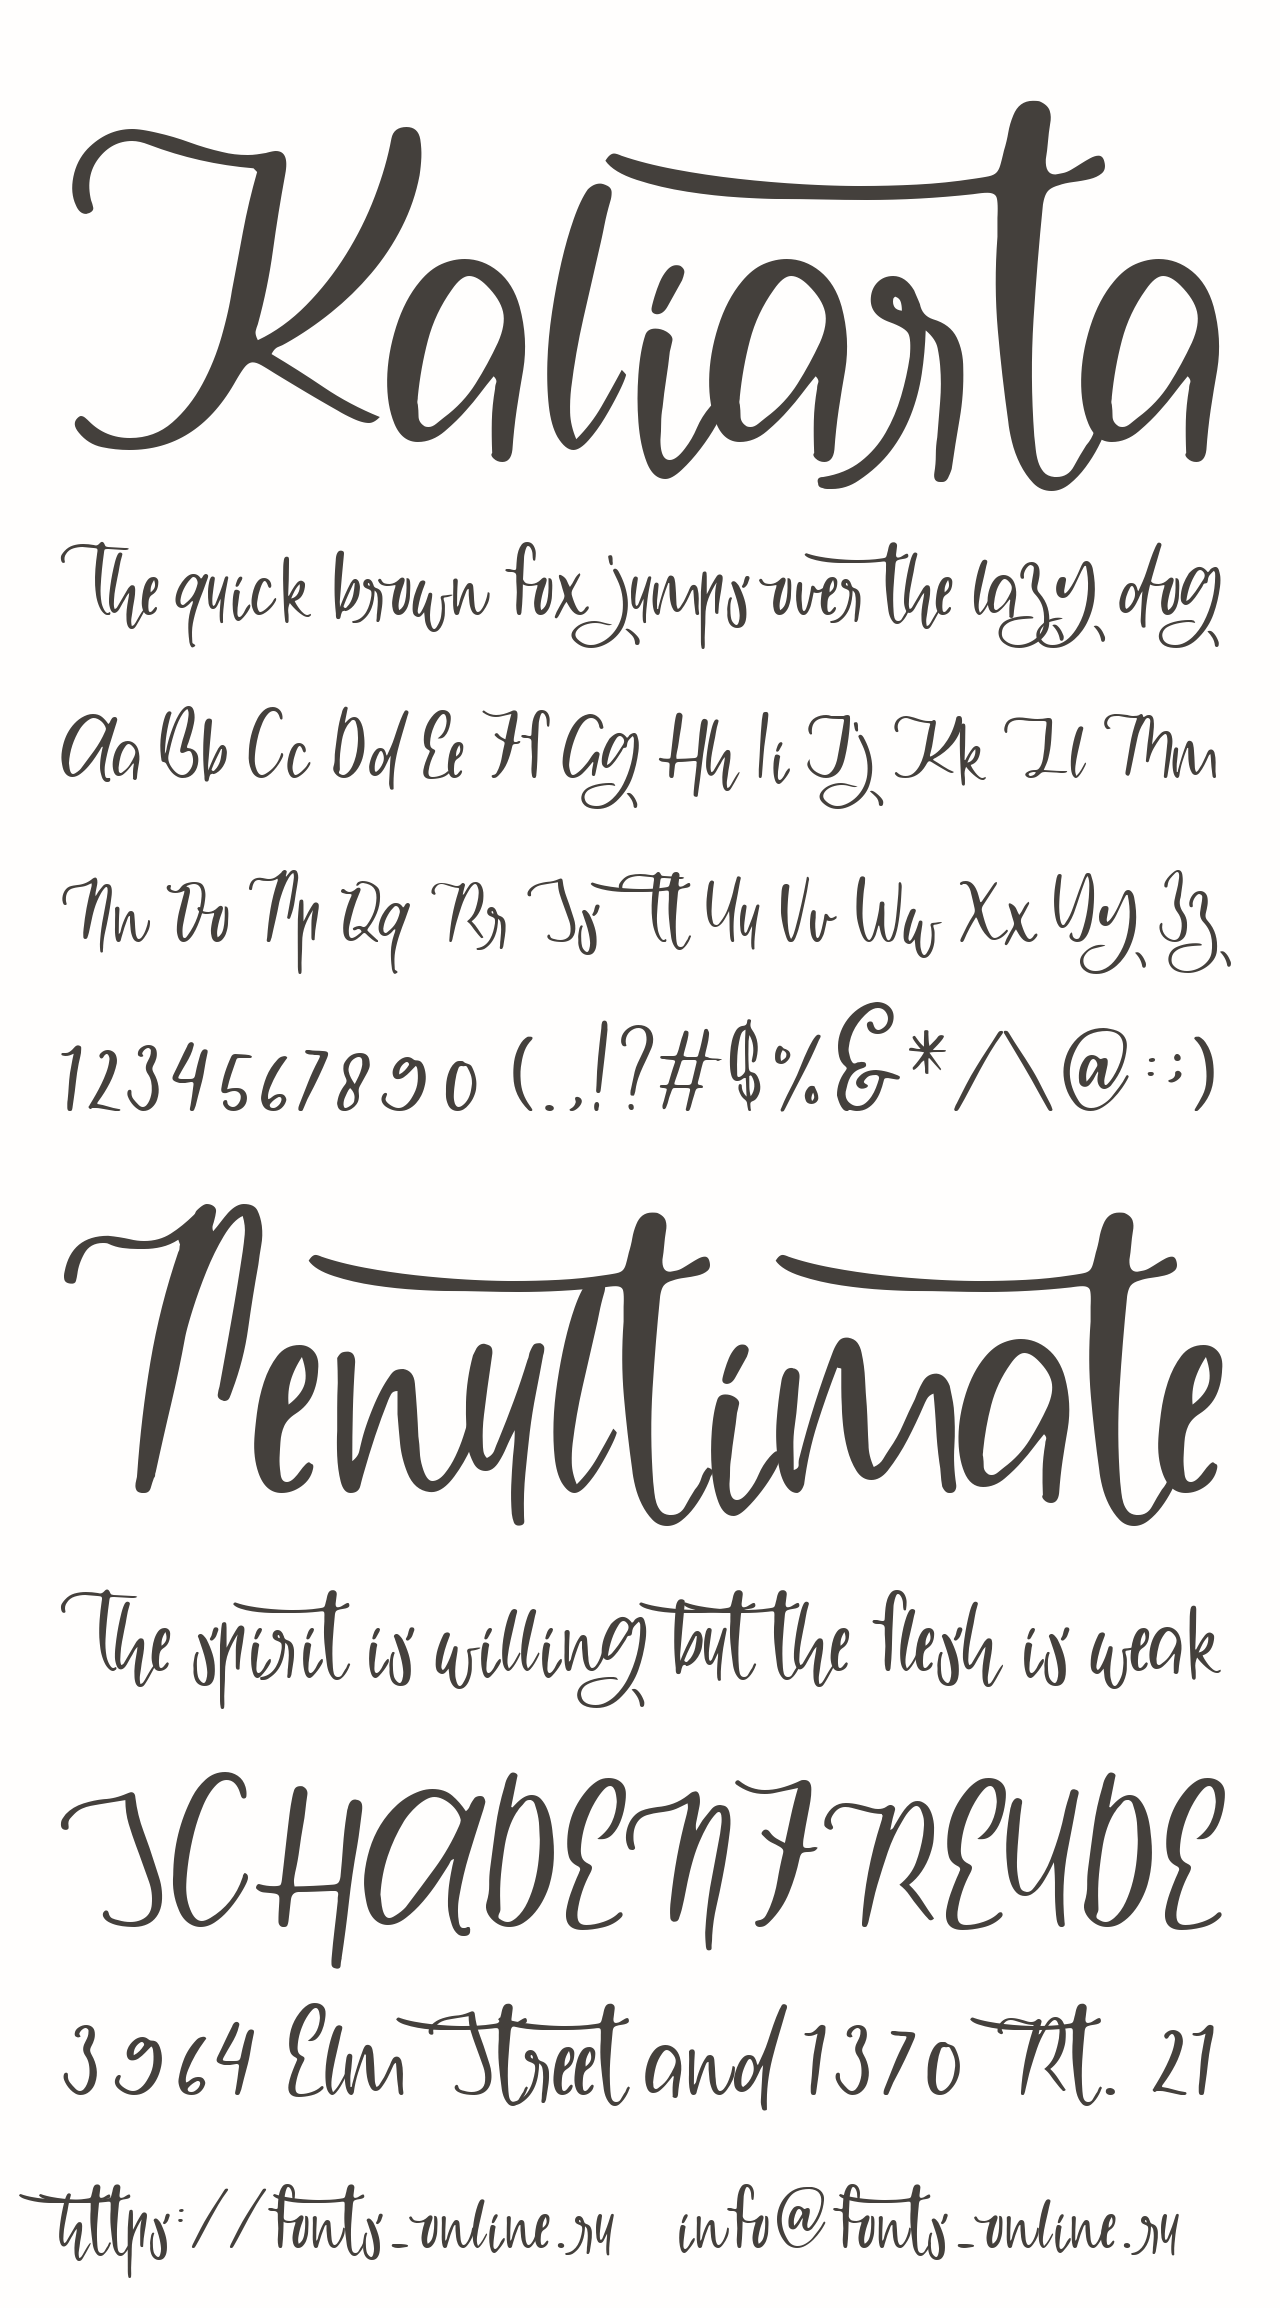 Kaliarta
The quick brown fox jumps over the lazy dog
Aa Bb Cc Dd Ee Ff Gg Hh Ii Jj Kk Ll Mm
Nn Oo Pp Qq Rr Ss Tt Uu Vv Ww Xx Yy Zz
1234567890 (.,!?#$%&*/\@:;)
Penultimate
The spirit is willing but the flesh is weak
SCHADENFREUDE
3964 Elm Street and 1370 Rt. 21
https://fonts-online.ru info@fonts-online.ru